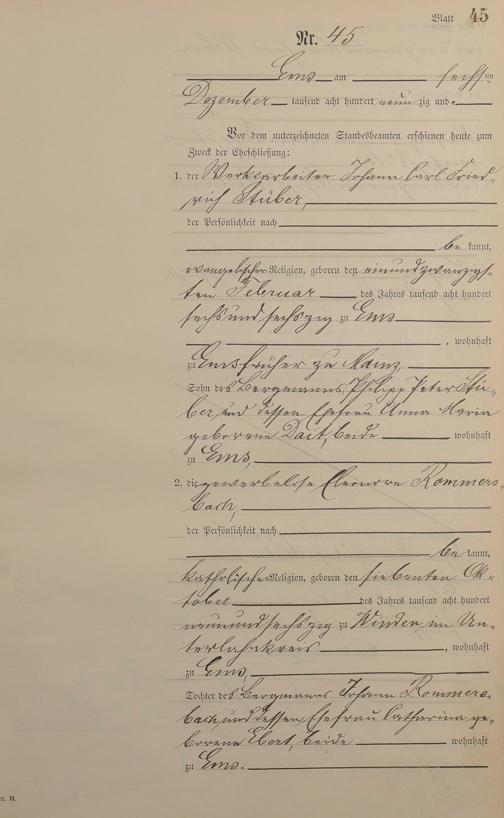 Blatt 45
Nr. 45
Ems am sechsten
Dezember tausend acht hundert neunzig und
Vor dem unterzeichneten Standesbeamten erschienen heute zum
Zweck der Eheschließung:
1. der Werksarbeiter Johann Carl Fried-
rich Stüber,
der Persönlichkeit nach
be kannt,
evangelischer Religion, geboren den einundzwanzigs-
ten Februar des Jahres tausend acht hundert
sechsundsechszig zu Ems
, wohnhaft
zu Ems früher zu Mainz,
Sohn des Bergmanns Philipp Peter Stü-
ber, und dessen Ehefrau Anna Maria
geborene Dait, beide wohnhaft
zu Ems,
2. die gewerbelose Eleonore Rommers-
bach,
der Persönlichkeit nach
be kannt,
katholischer Religion, geboren den siebenten Ok-
tober des Jahres tausend acht hundert
neunundsechszig zu Winden im Un-
terlahnkreis , wohnhaft
zu Ems
Tochter des Bergmanns Johann Rommers-
bach, und dessen Ehefrau Catharina ge-
borene Ebert, beide wohnhaft
zu Ems.
B.